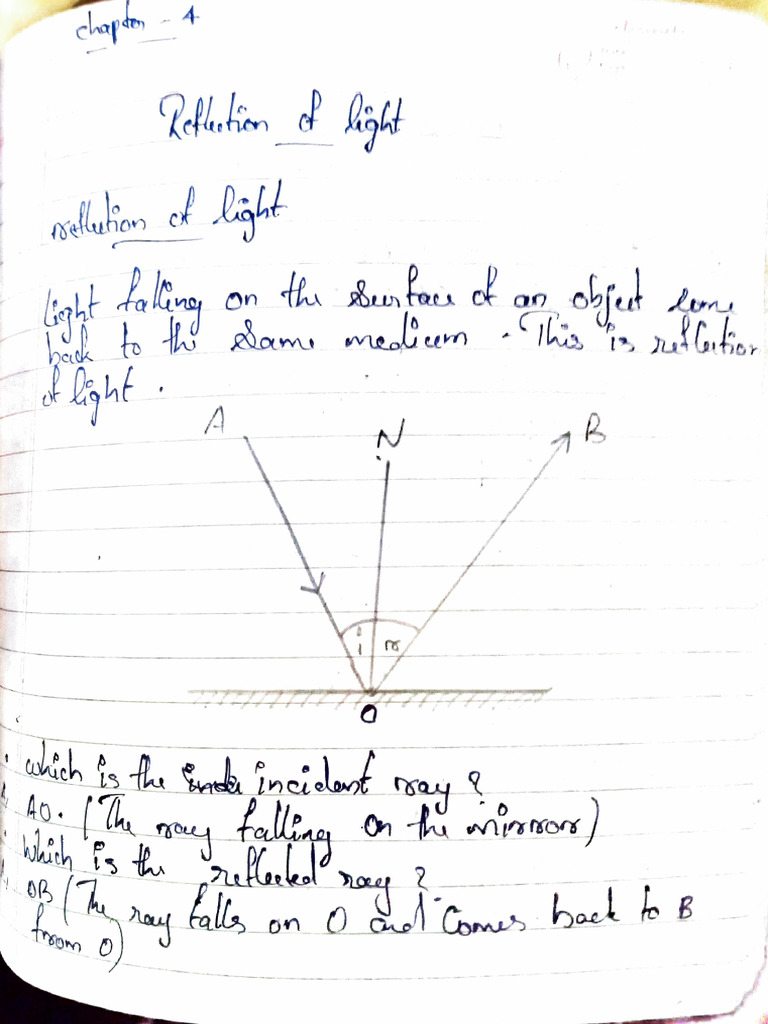 chapter - 4
Reflection of light
reflection of light
Light falling on the surface of an object come
back to the same medium. This is reflection
of light.
A
N
B
i
r
O
. which is the incident ray?
AO. (The ray falling on the mirror)
. which is the reflected ray?
OB (The ray falls on O and comes back to B
from O)